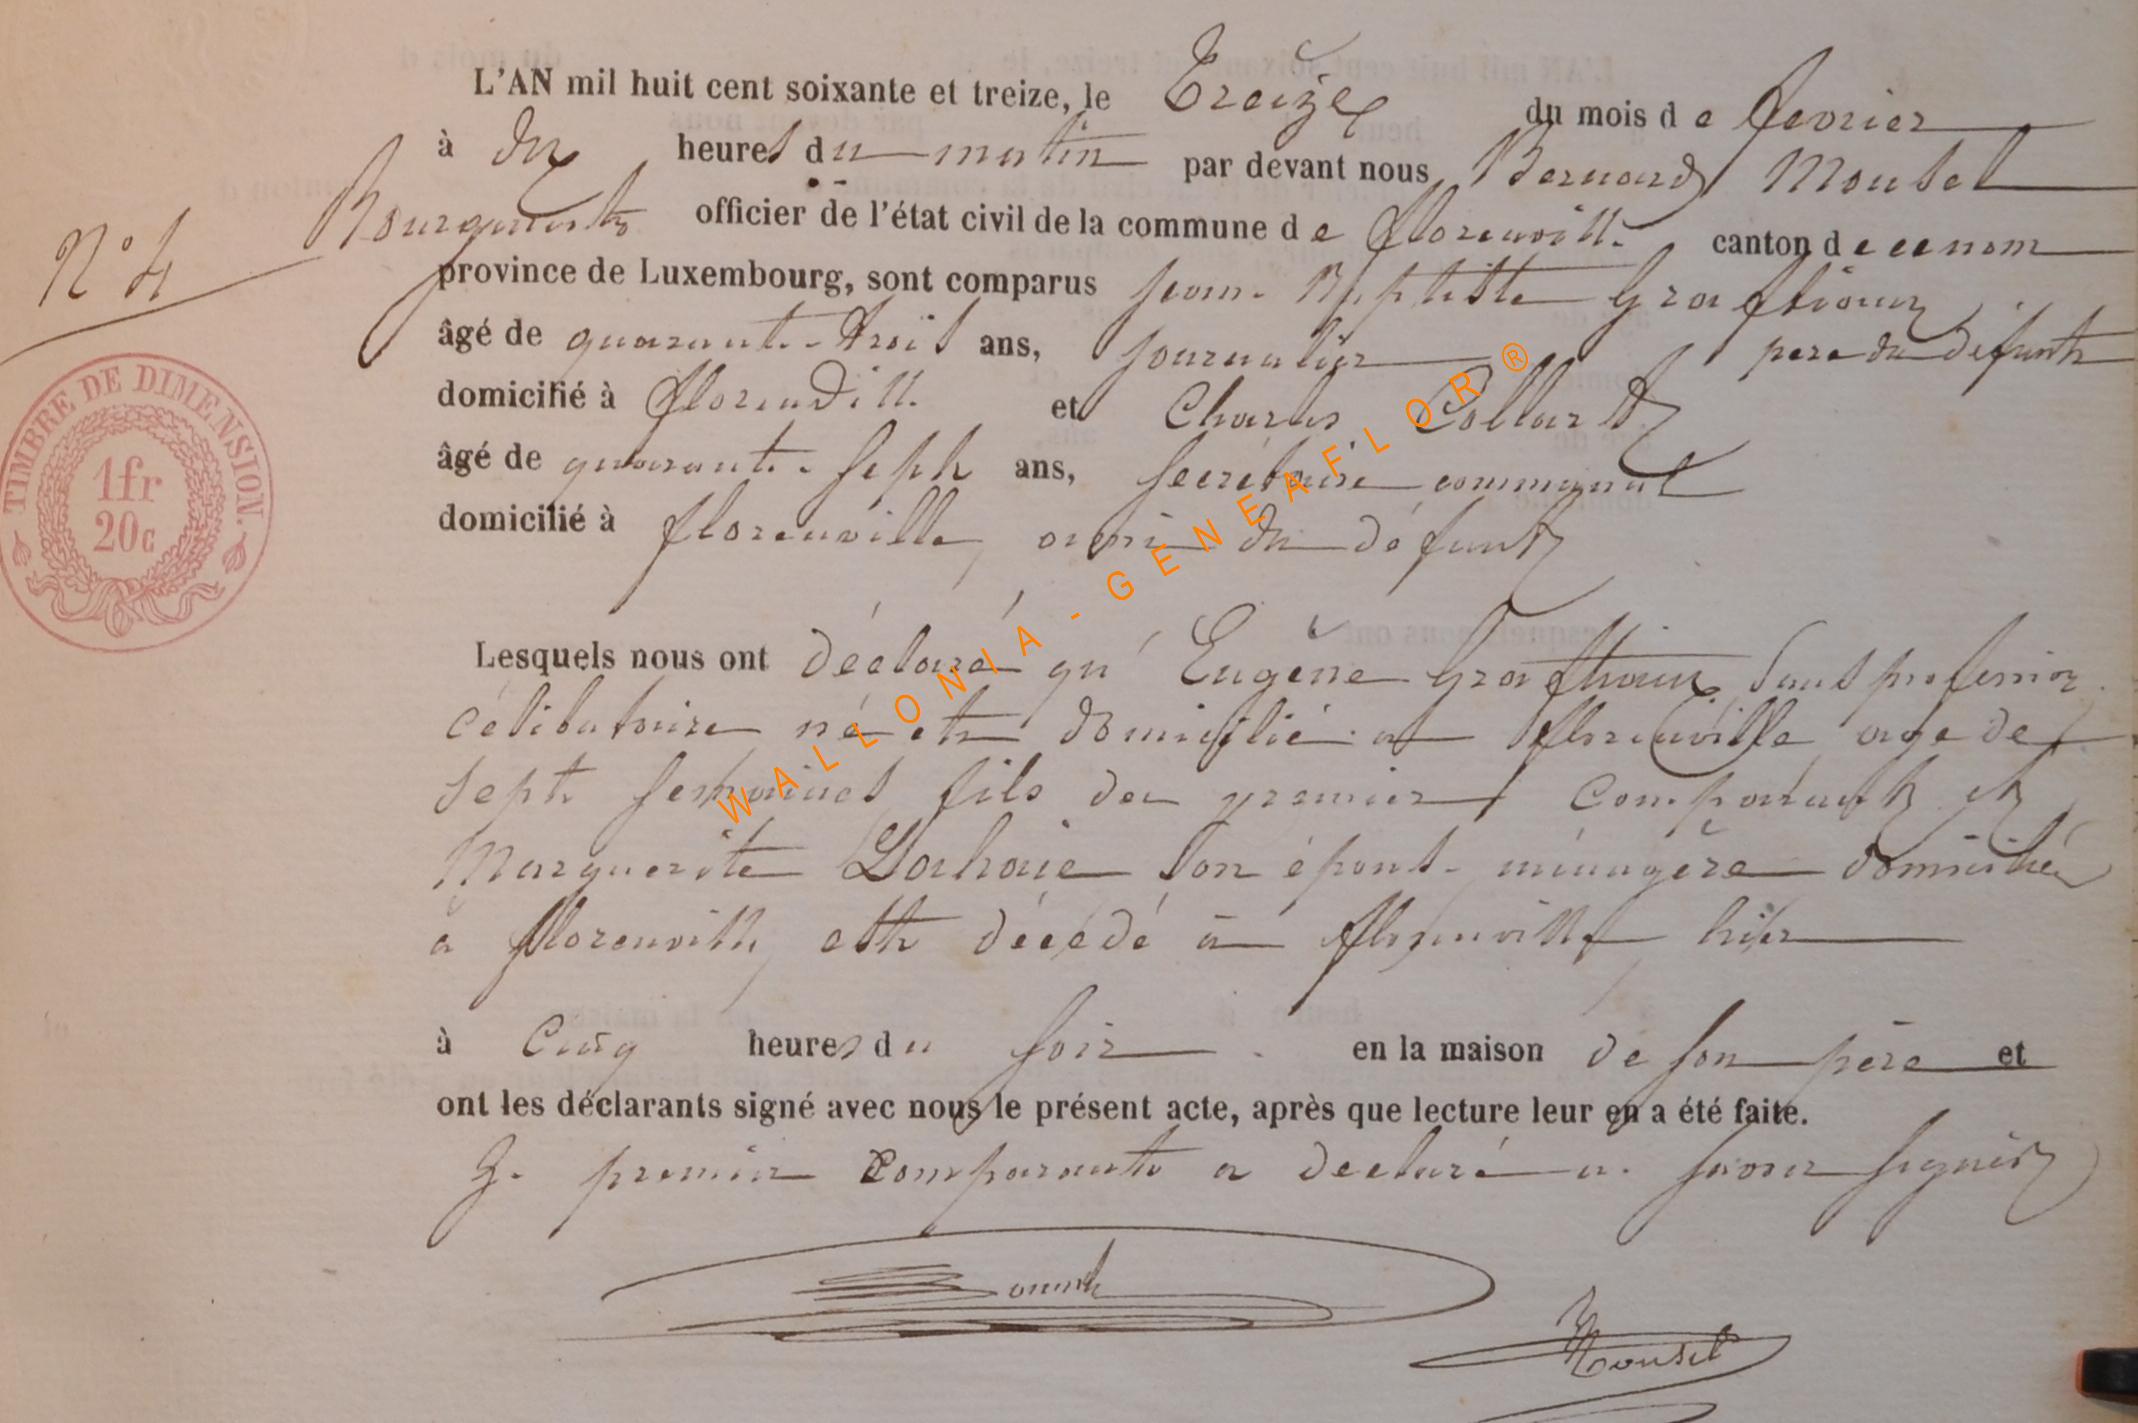 L'AN mil huit cent soixante et treize, le Treize du mois de fevrier
à dix heures du matin par devant nous Bernard Mousel
Bourgmestre officier de l'état civil de la commune de florenville canton de ce nom
N° 4
province de Luxembourg, sont comparus Jean-Baptiste Graftiaux
âgé de quarante-trois ans, journalier pere du défunt
domicilié à florenville et Charles Collard
âgé de quarante-sept ans, secrétaire communal
domicilié à florenville, ami du défunt
TIMBRE DE DIMENSION.
1fr
20c
WALLONIA - GENEAFLOR ®
Lesquels nous ont déclaré qu'Eugène Grafthiaux sans profession
célibataire né et domicilié a florenville age de
sept semaines fils du premier comparant et
Marguerite Lahaie son épouse ménagère domiciliés
a florenville, est décédé à florenville, hier
à Cinq heures du soir en la maison de son père et
ont les déclarants signé avec nous le présent acte, après que lecture leur en a été faite.
Le premier Comparant a declaré ne savoir signer
Mousel